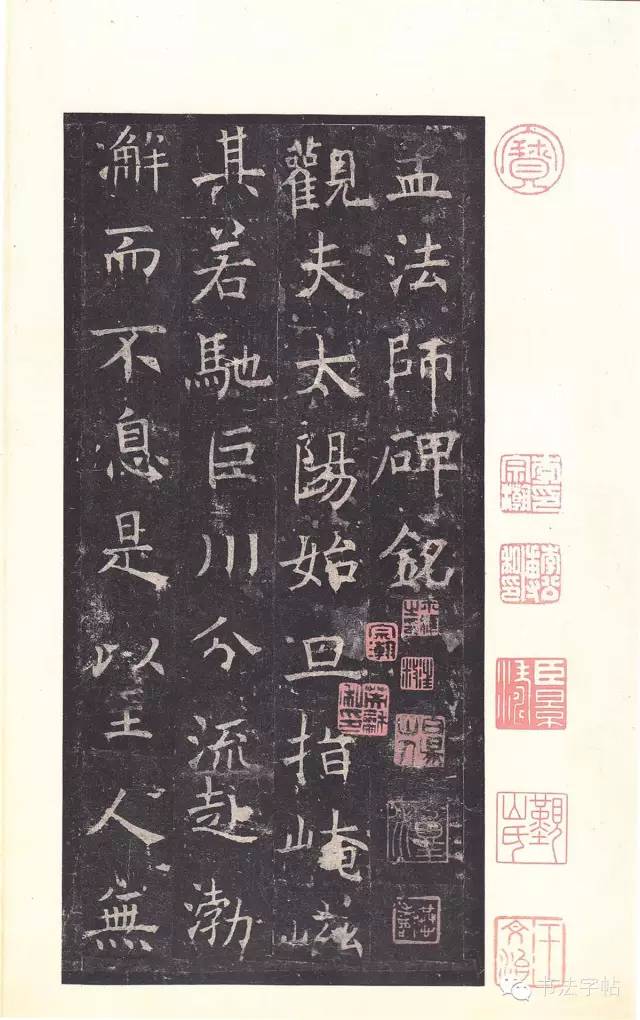 孟法師碑銘
觀夫太陽始旦指崦嵫
其若馳巨川分流赴渤
澥而不息是以至人無
寶
宗瀚
臣景
觀
山氏
书法字帖